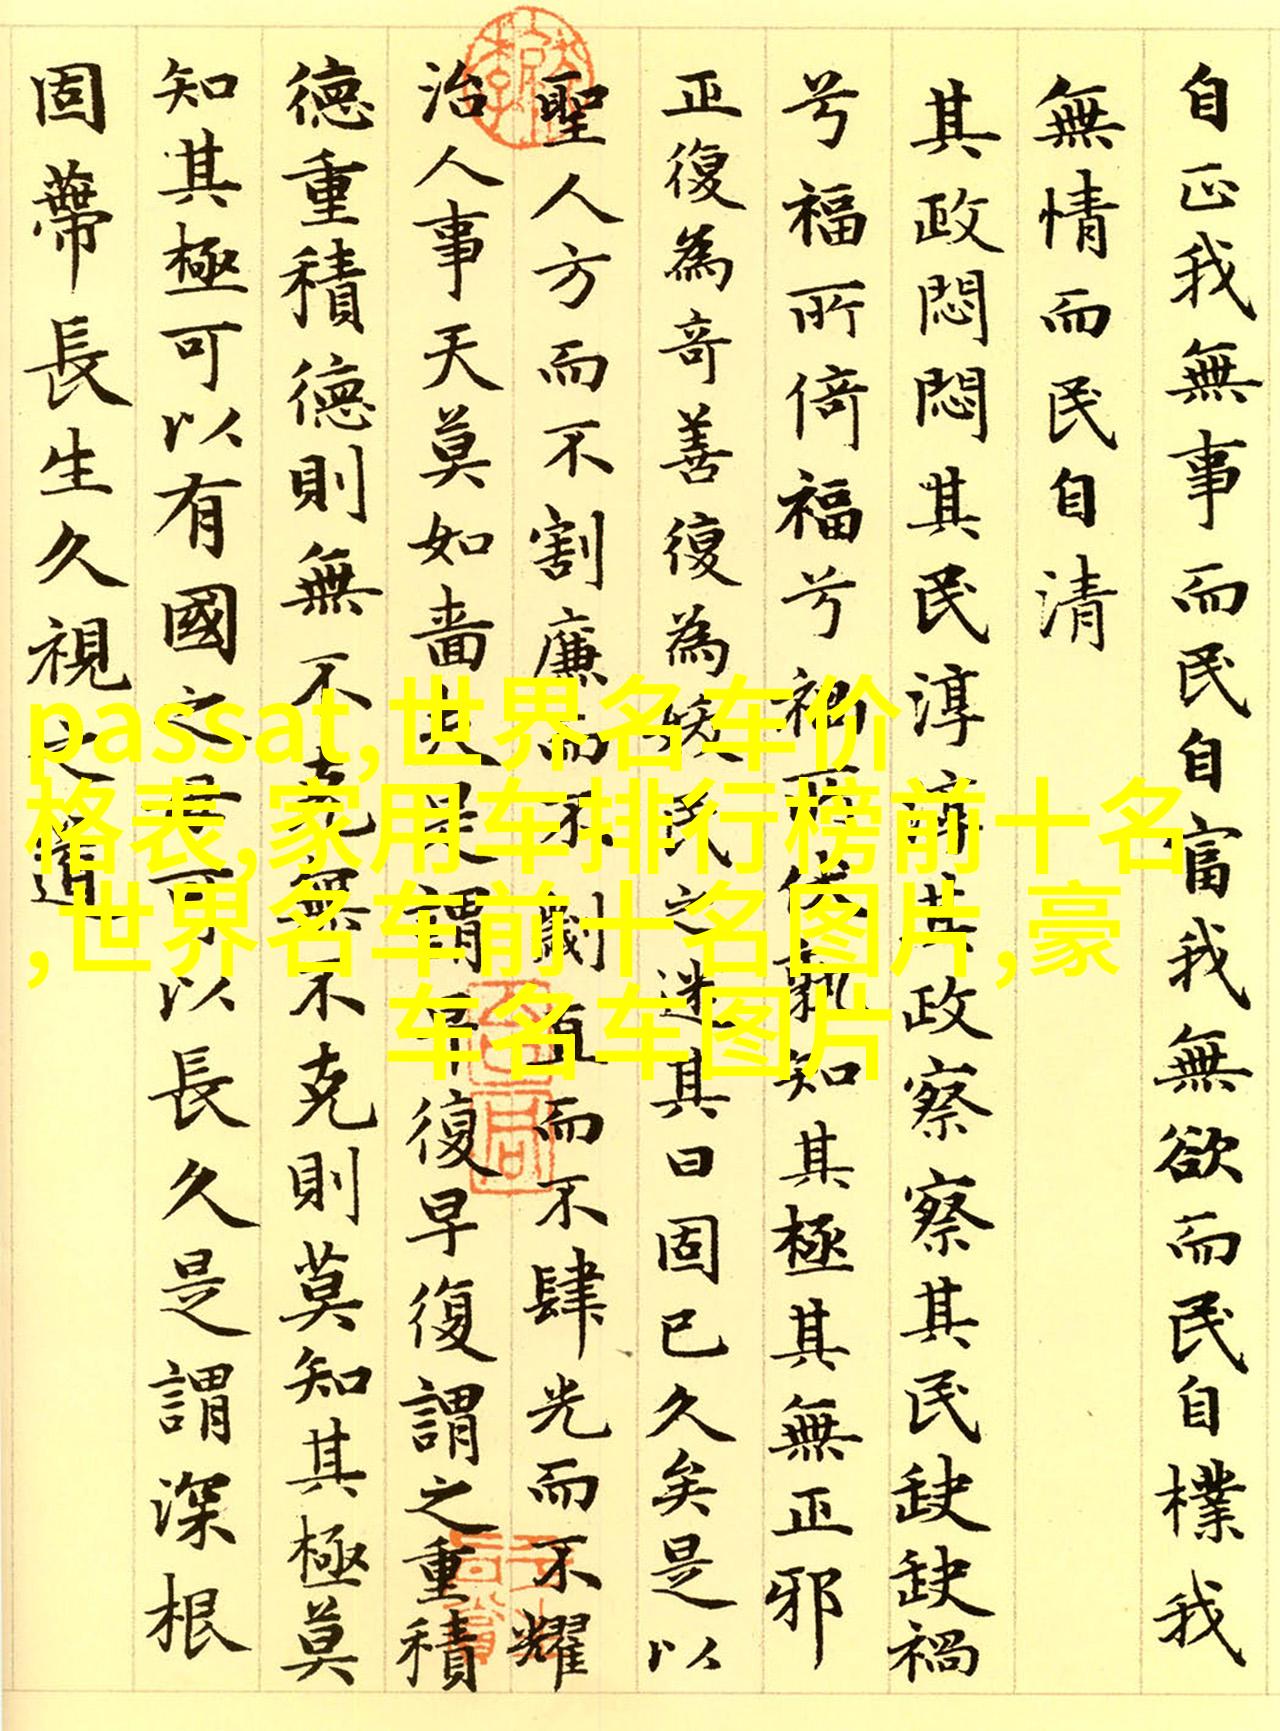 自正我無事而民自富我無欲而民自樸我
無情而民自清
其政悶悶其民淳淳其政察察其民缺缺禍
兮福所倚福兮禍所伏孰知其極其無正邪
正復為奇善復為妖民之迷其日固已久矣是以
聖人方而不割廉而不劌直而不肆光而不耀
治人事天莫如嗇夫是謂早復早復謂之重積
德重積德則無不克無不克則莫知其極莫
知其極可以有國之母可以長久是謂深根
固蔕長生久視之道
passat,世界名车价
格表,家用车排行榜前十名
,世界名车前十名图片,豪
车名车图片